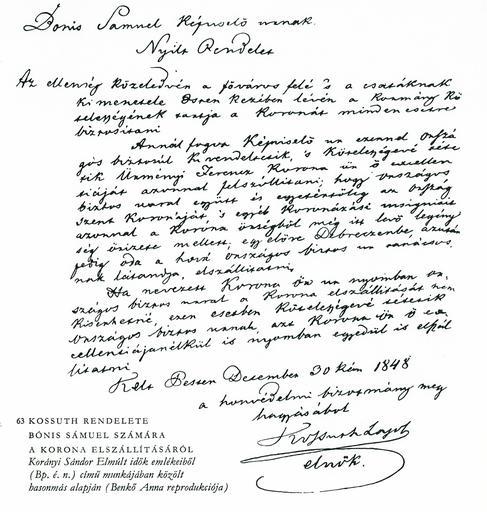 Bonis Samuel Képviselő urnak.
Nyilt Rendelet
Az ellenség közeledvén a főváros felé 's a csatáknak
kimenetele Isten kezében lévén a Kormány Kö
telességének tartja a Koronát minden esetre
biztositani
Annál fogva Képviselő ur ezennel orszá
gos biztosul kirendeltetik, 's Kötelességévé téte
tik Ürményi Ferencz Korona őr ő excellen
tiáját azonnal felszóllitani, hogy országos
biztos urral együtt és egyetértőleg az ország
szent Koronáját, 's egyéb Koronázási insigniáit
azonnal a Korona őrségből még itt levő legény
ség őrizete mellett, egyelőre Debreczenbe, azután
pedig oda a hová országos biztos ur tanácsos
nak látandja, elszállitatni,
Ha nevezett Korona őr ur nyomban or
szágos biztos urral a Korona elszállitását nem
kisérhetné, ezen esetben Kötelességévé tétetik
országos biztos urnak, azt Korona őr ő ex
cellentiája nélkül is nyomban egyedül is elszál
litatni
Kelt Pesten December 30 kán 1848
a honvédelmi bizotmány meg
hagyásából
Kossuth Lajos
elnök.
63 KOSSUTH RENDELETE
BÓNIS SÁMUEL SZÁMÁRA
A KORONA ELSZÁLLÍTÁSÁRÓL
Korányi Sándor Elmúlt idők emlékeiből
(Bp. é. n.) című munkájában közölt
hasonmás alapján (Benkő Anna reprodukciója)